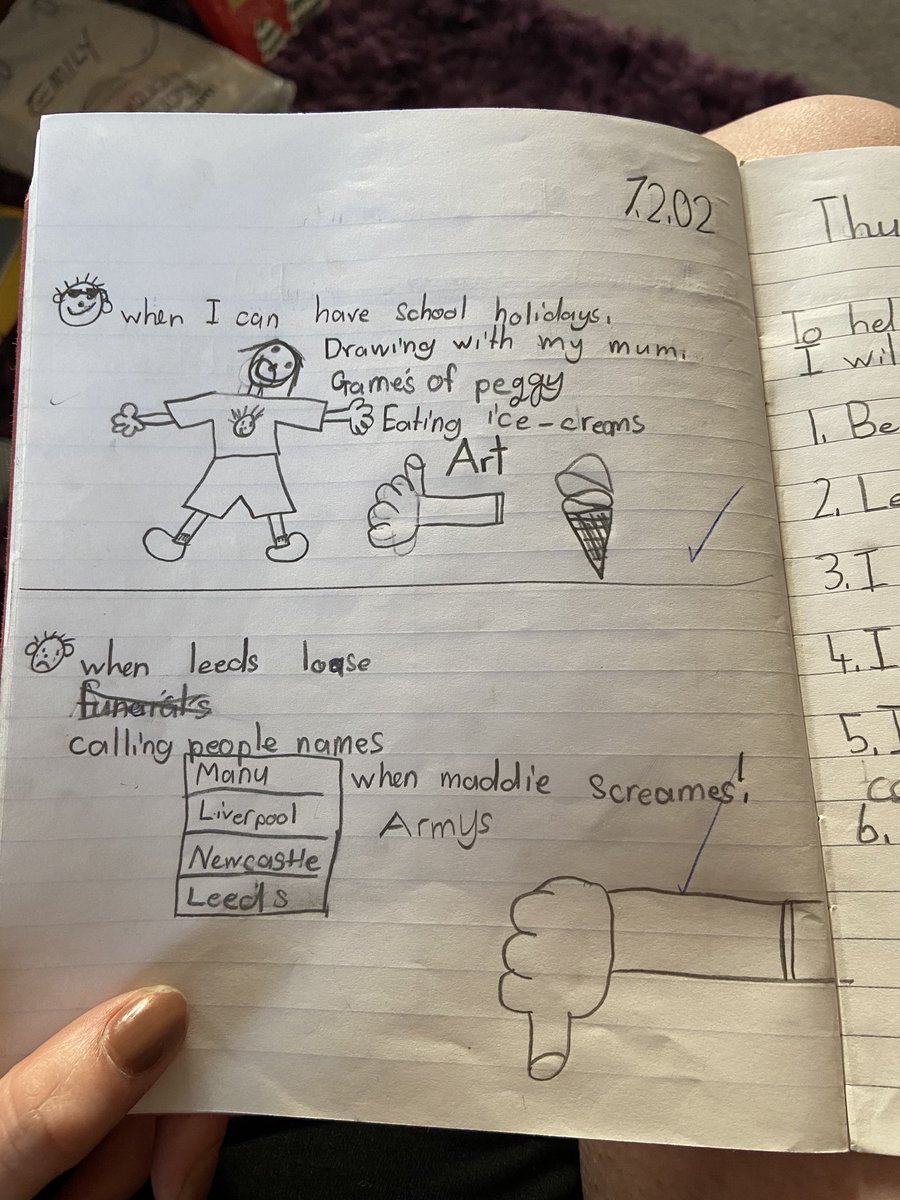 EMILY
7.2.02
when I can have school holidays.
Drawing with my mum.
Game's of peggy
Eating ice-creams
Art
when leeds loose
funerials
calling people names
Manu
Liverpool
Newcastle
Leeds
when maddie screames!
Armys
Thu
To hel
I wil
1. Be
2. Le
3. I
4. I
5. I
co
6.